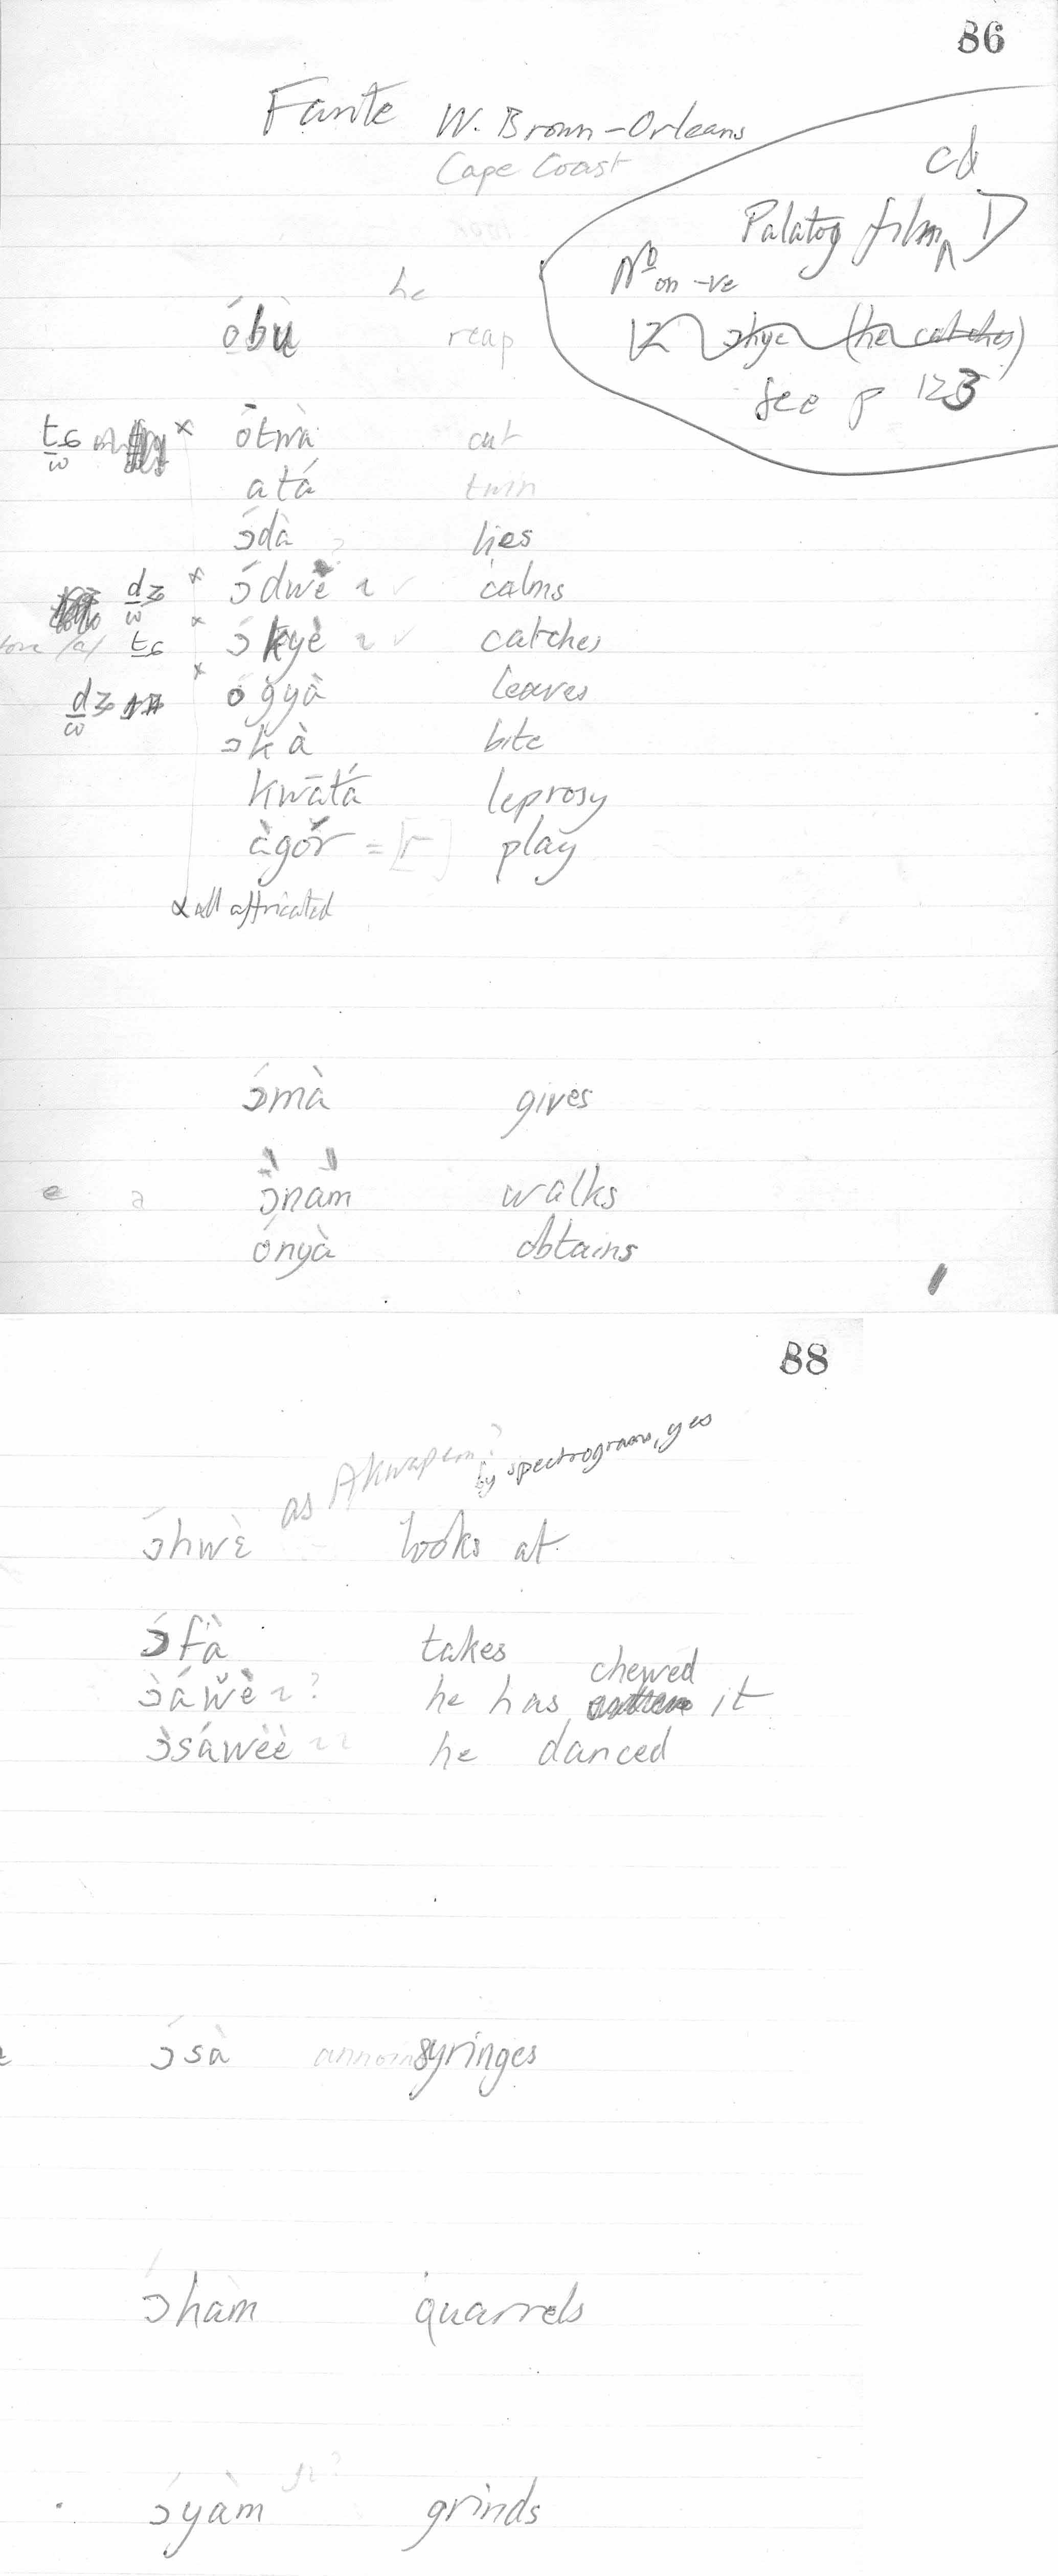 86
Fante W. Brown-Orleans
Cape Coast
cd
Palatog film D
Nº on -ve
12 ɔkye (he catches)
See p 123
he
óbù reap
tɕ ótwà cut
atá twin
ɔ́dà lies
dʒ × ɔ́dwè ~ ✓ calms
tɕ × ɔ́kyè ~ ✓ catches
dʒ × ógyà leaves
ɔkà bite
kwātá leprosy
àgór = [r] play
× all affricated
ɔ́mà gives
e a ɔ̀nam walks
ónyà obtains
88
as Akwapem? by spectrogram, yes
ɔ́hwὲ looks at
ɔ́fà takes
chewed
ɔ̀áwè ~? he has it
ɔ̀sáwèè ~~ he danced
ɔ́sà syringes
ɔ́hàm quarrels
ɔ́yàm grinds